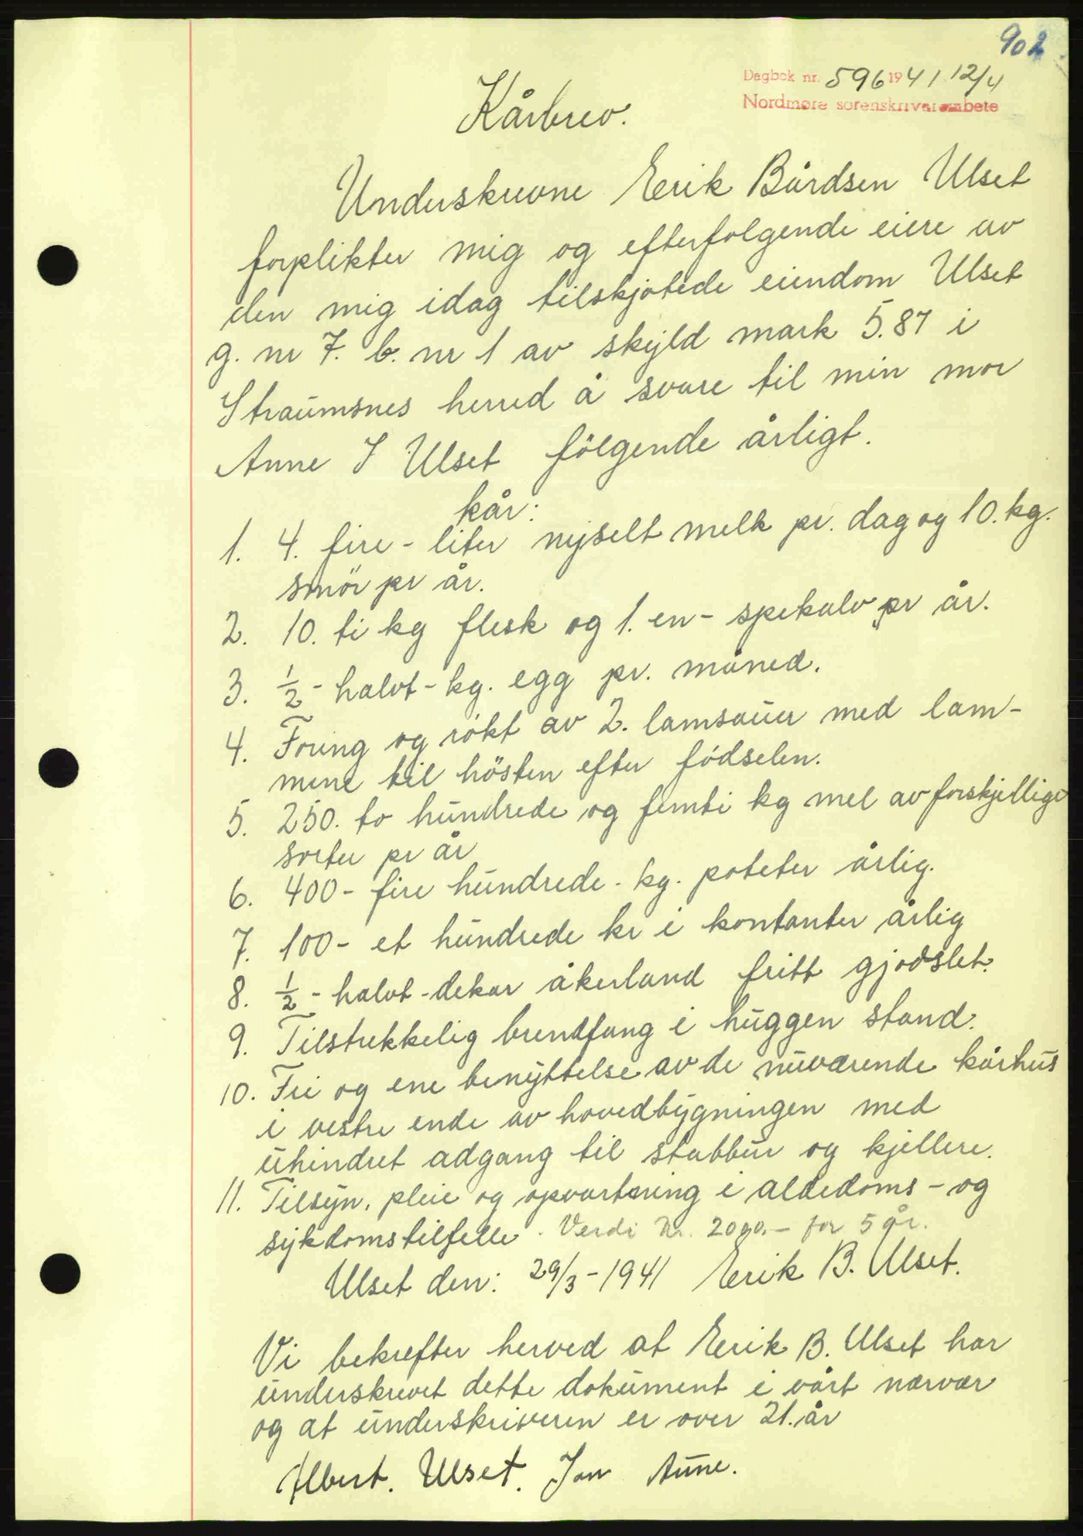 902
Dagbok nr. 596 1941 12/4
Nordmøre sorenskriverembete
Kårbrev.
Underskrevne Erik Bårdsen Ulset
forplikter mig og efterfølgende eiere av
den mig idag tilskjøtede eiendom Ulset
g. nr 7. b. nr 1 av skyld mark 5.87 i
Straumsnes herred å svare til min mor
Anne J Ulset følgende årligt.
kår:
1. 4. fire - liter nyselt melk pr. dag og 10. kg.
smör pr år.
2. 10. ti kg flesk og 1. en - spekalv pr år.
3. 1/2 - halvt - kg. egg pr. måned.
4. Foring og røkt av 2. lamsauer med lam-
mene til hösten efter fødselen.
5. 250. to hundrede og femti kg mel av forskjellige
sorter pr år
6. 400 - fire hundrede - kg. poteter årlig.
7. 100 - et hundrede kr i kontanter årlig
8. 1/2 - halvt - dekar åkerland fritt gjødslet.
9. Tilstrekkelig brendfang i huggen stand.
10. Fri og ene benyttelse av de nuværende kårhus
i vestre ende av hovedbygningen med
uhindret adgang til stabbur og kjellere.
11. Tilsyn, pleie og opvartning i alderdoms - og
sykdomstilfelle. Verdi kr. 2000.- for 5 år.
Ulset den: 29/3 - 1941 Erik B. Ulset.
Vi bekrefter herved at Erik B. Ulset har
underskrevet dette dokument i vårt nærvær
og at underskriveren er over 21. år
Albert. Ulset. Jon Aune.